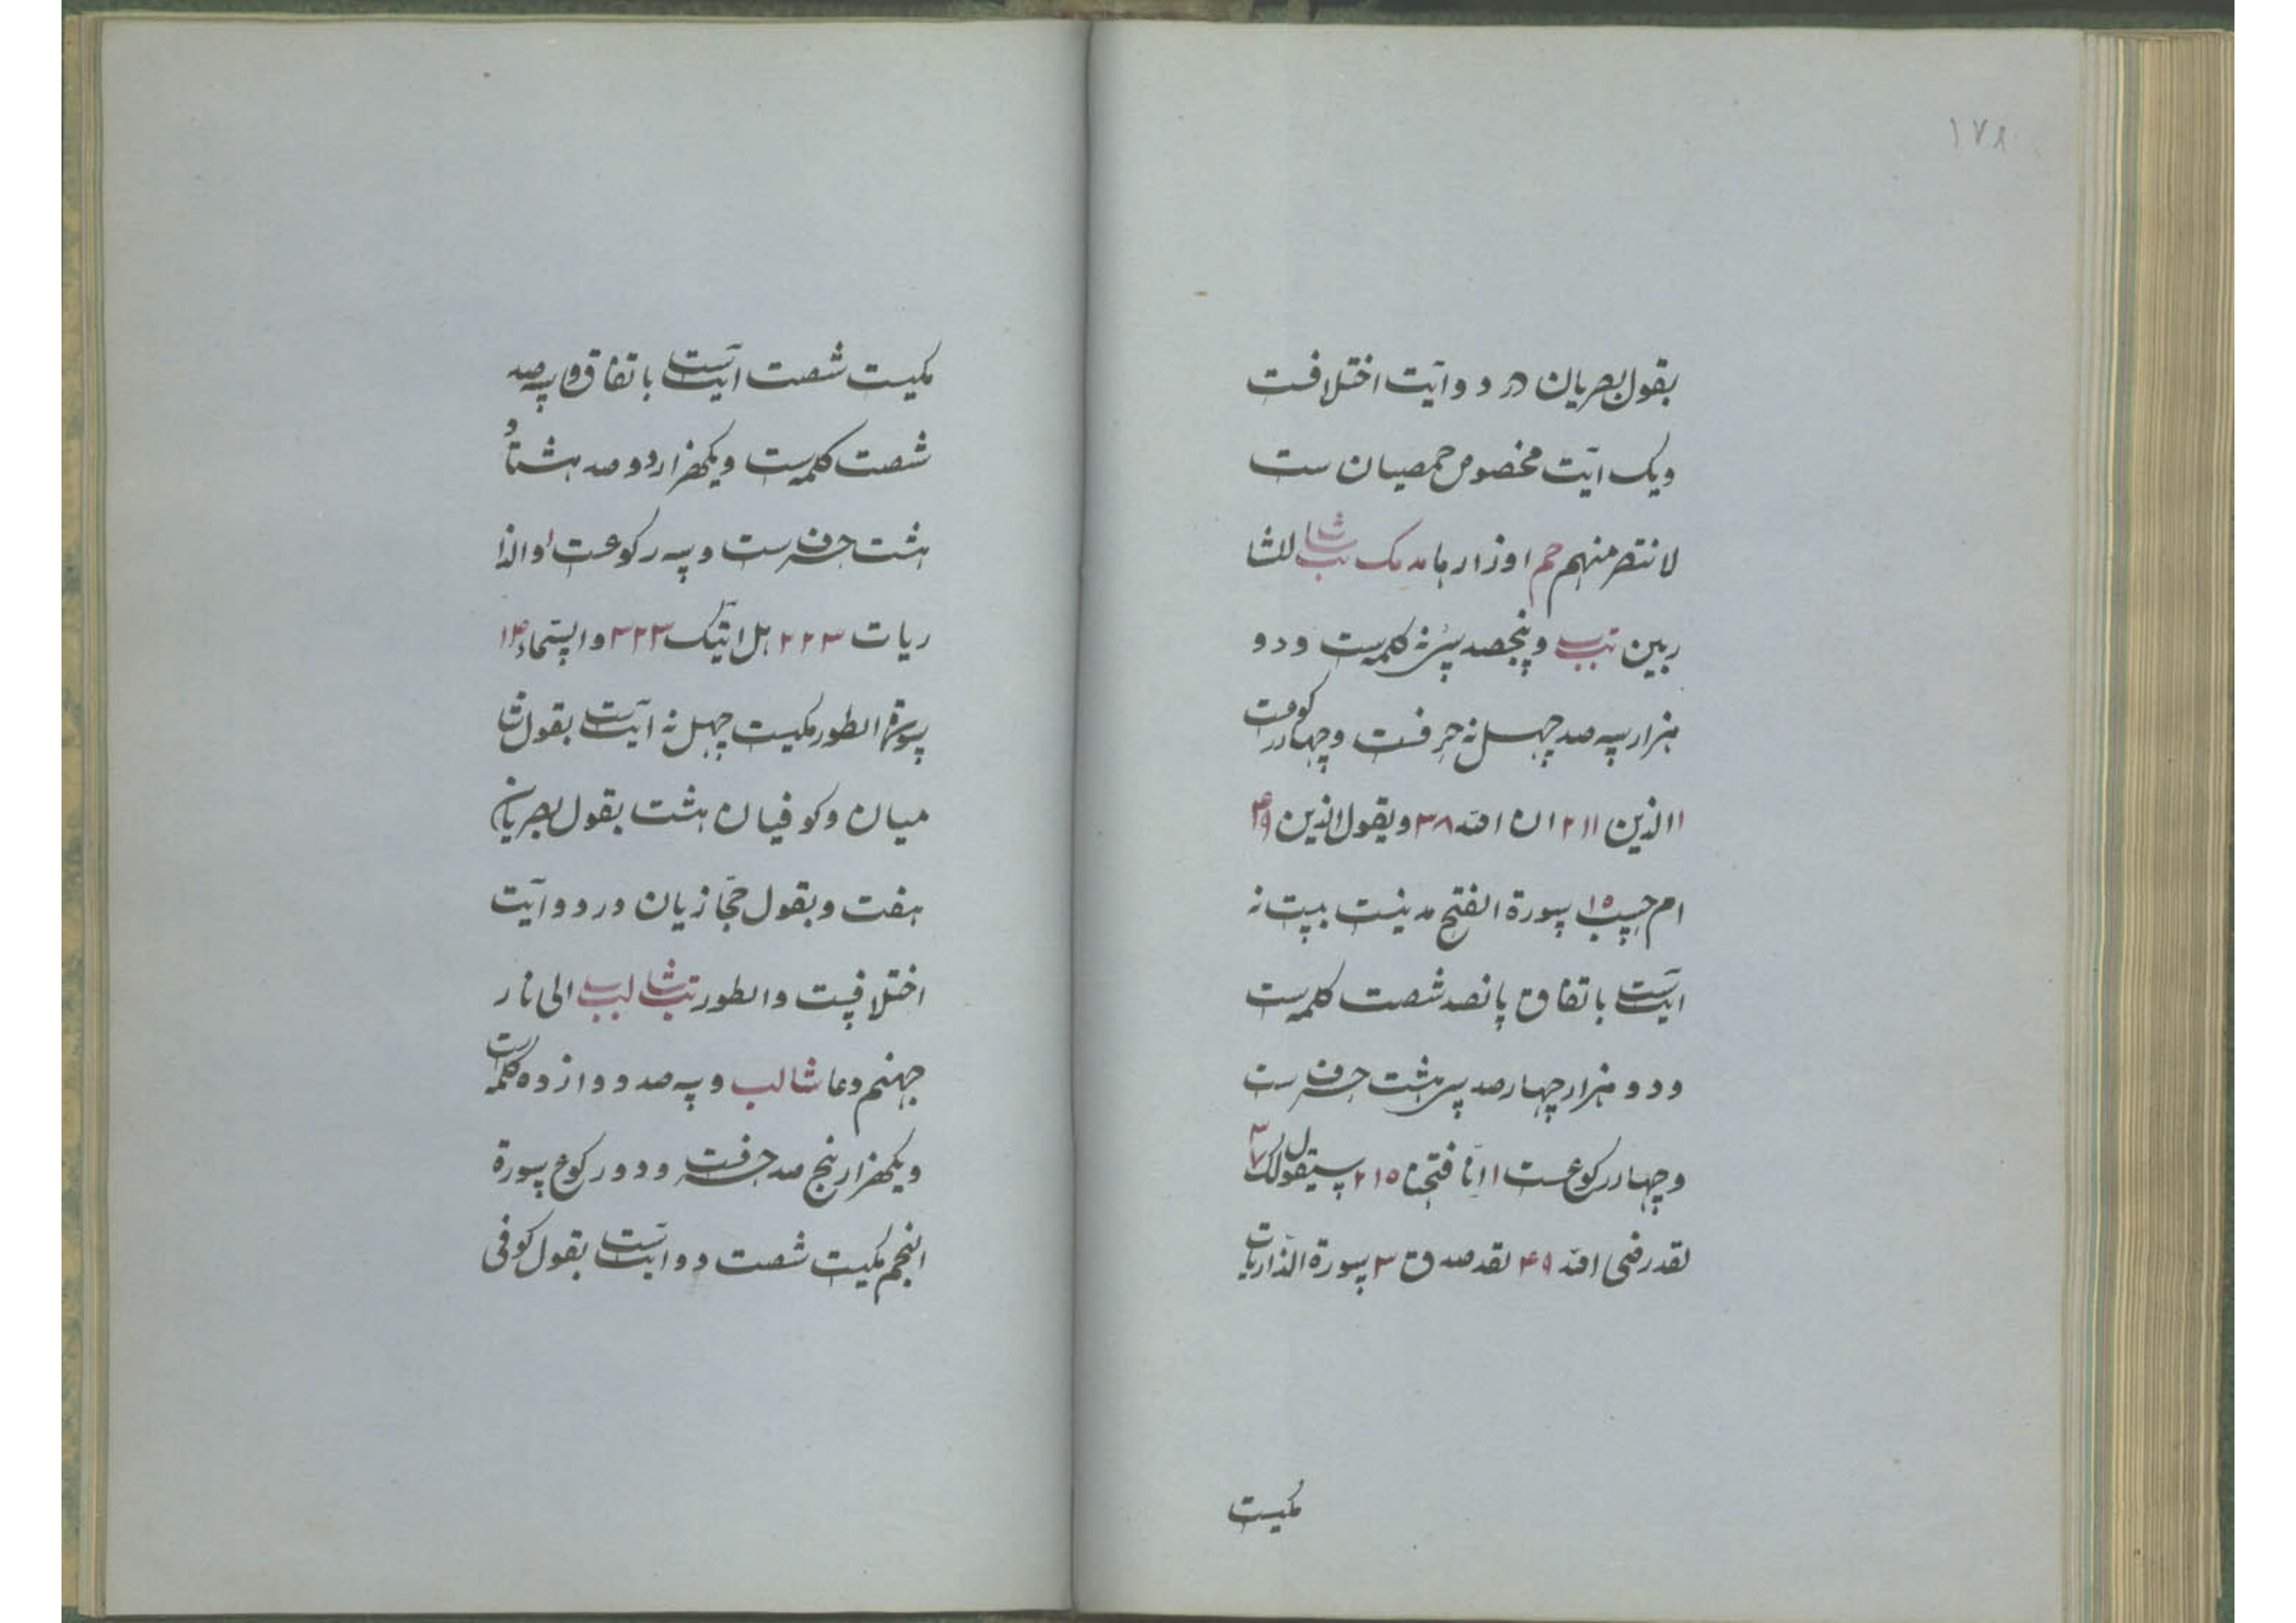 ۱۷۸
بقول بصریان در دو آیت اختلافست
ویک ایت مخصوص حمصیان ست
لانتصر منهم حم اوزارها مد مک تب شا للشا
ربین تبب وپنجصد سی نه کلمه ست ودو
هزار سه صد چهل نه حرفست وچهار رکوعست
۱ الذین ۲۱۱ ان الله ۳۸ ویقول الذین ۴۹
ام حسب ۱۵ سورة الفتح مدنیست بیست نه
ایتست باتفاق پانصد شصت کلمه ست
ودو هزار چهار صد سی هشت حرف ست
وچهار رکوعست ۱ انا فتحنا ۲۱۵ سیقول لک ۳۷
لقد رضی الله ۴۹ لقد صدق ۳ سورة الذاریات
مکیست
مکیست شصت ایتست باتفاق و سه صد
شصت کلمه ست ویکهزار دو صد هشتاد و
هشت حرف ست و سه رکوعست ۱ والذا
ریات ۲۲۳ هل اتیک ۳۲۳ والسماء ۱۴
سورة الطور مکیست چهل نه ایتست بقول شا
میان وکوفیان هشت بقول بصریان
هفت وبقول حجازیان در دو آیت
اختلافست والطور تب شا لبب الی نار
جهنم دعا شا لب و سه صد دوازده کلمه ست
ویکهزار پنج صد حرفست ودو رکوع سورة
النجم مکیست شصت دو ایتست بقول کوفی